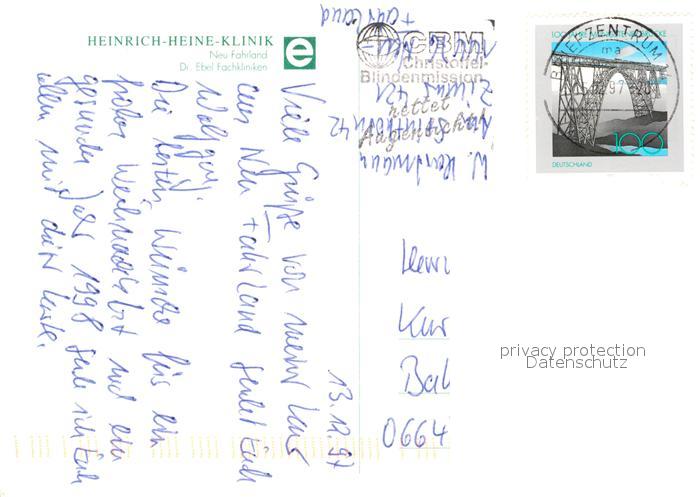 HEINRICH-HEINE-KLINIK
Neu Fahrland
Dr. Ebel Fachkliniken
e
CBM
Christoffel-
Blindenmission
rettet
Augenlicht
BRIEFZENTRUM
DEUTSCHLAND
100
13.12.97
Viele Grüße von meiner
aus Neu Fahrland sendet Euch
Wolfgang.
Die besten Wünsche für ein
frohes Weihnachtsfest und ein
gesundes Jahr 1998 sende ich Euch
allen mit dieser Karte.
W.
Zimmer 421
Neu-
Fahrland
Herr
Kur
Bal
0664
privacy protection
Datenschutz